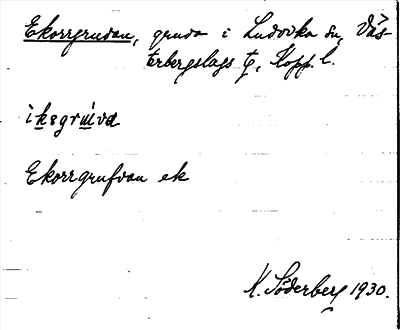 Ekorrgruvan, gruva i Ludvika sn, Väs-
terbergslags tg, Kopp. l.
ikegrúva
Ekorrgrufvan ek
K. Söderberg 1930.